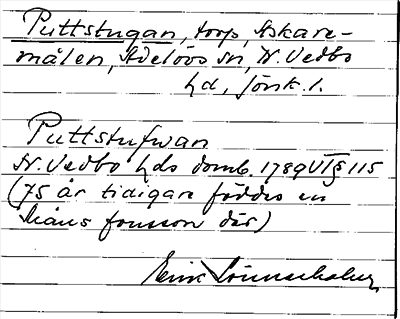 Puttstugan, torp, Askare-
målen, Adelövs sn, N. Vedbo
hd, Jönk. l.
Puttstufwan
N. Vedbo hds domb. 1789 VI § 115
(75 år tidigare föddes en
Måns Jonsson där)